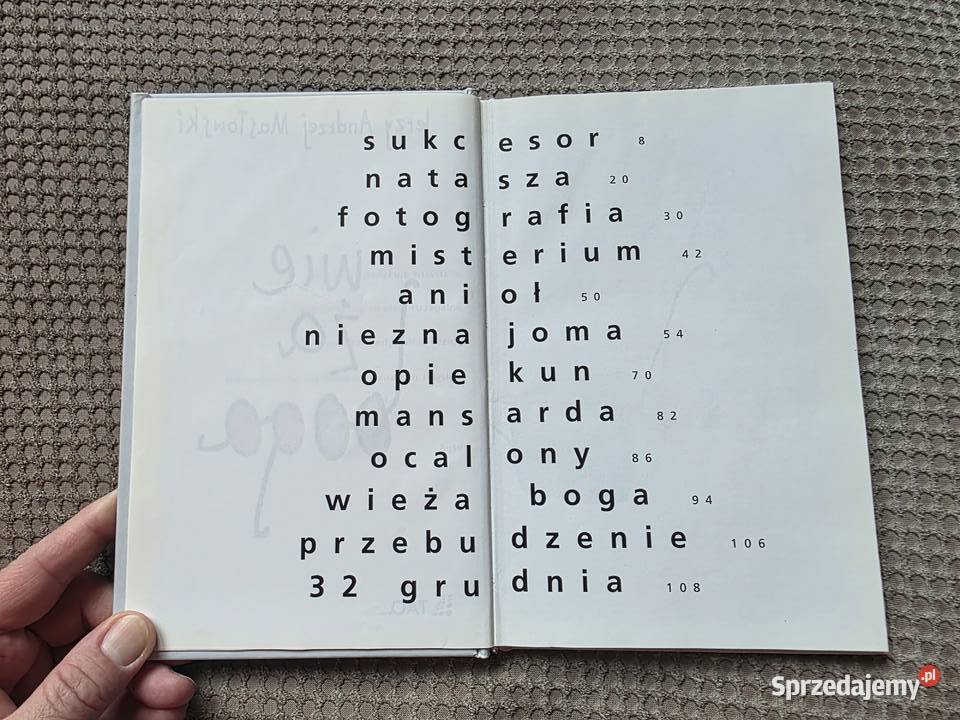 Jerzy Andrzej Masłowski
sukcesor 8
natasza 20
fotografia 30
misterium 42
anioł 50
nieznajoma 54
opiekun 70
mansarda 82
ocalony 86
wieża boga 94
przebudzenie 106
32 grudnia 108
wie
ża
boga
TAO
Sprzedajemy.pl